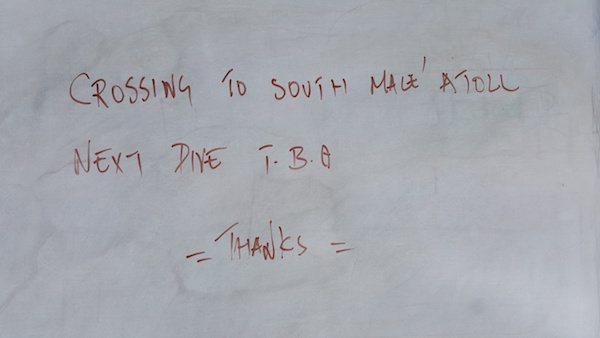 CROSSING TO SOUTH MALE' ATOLL
NEXT DIVE T.B.A
= THANKS =